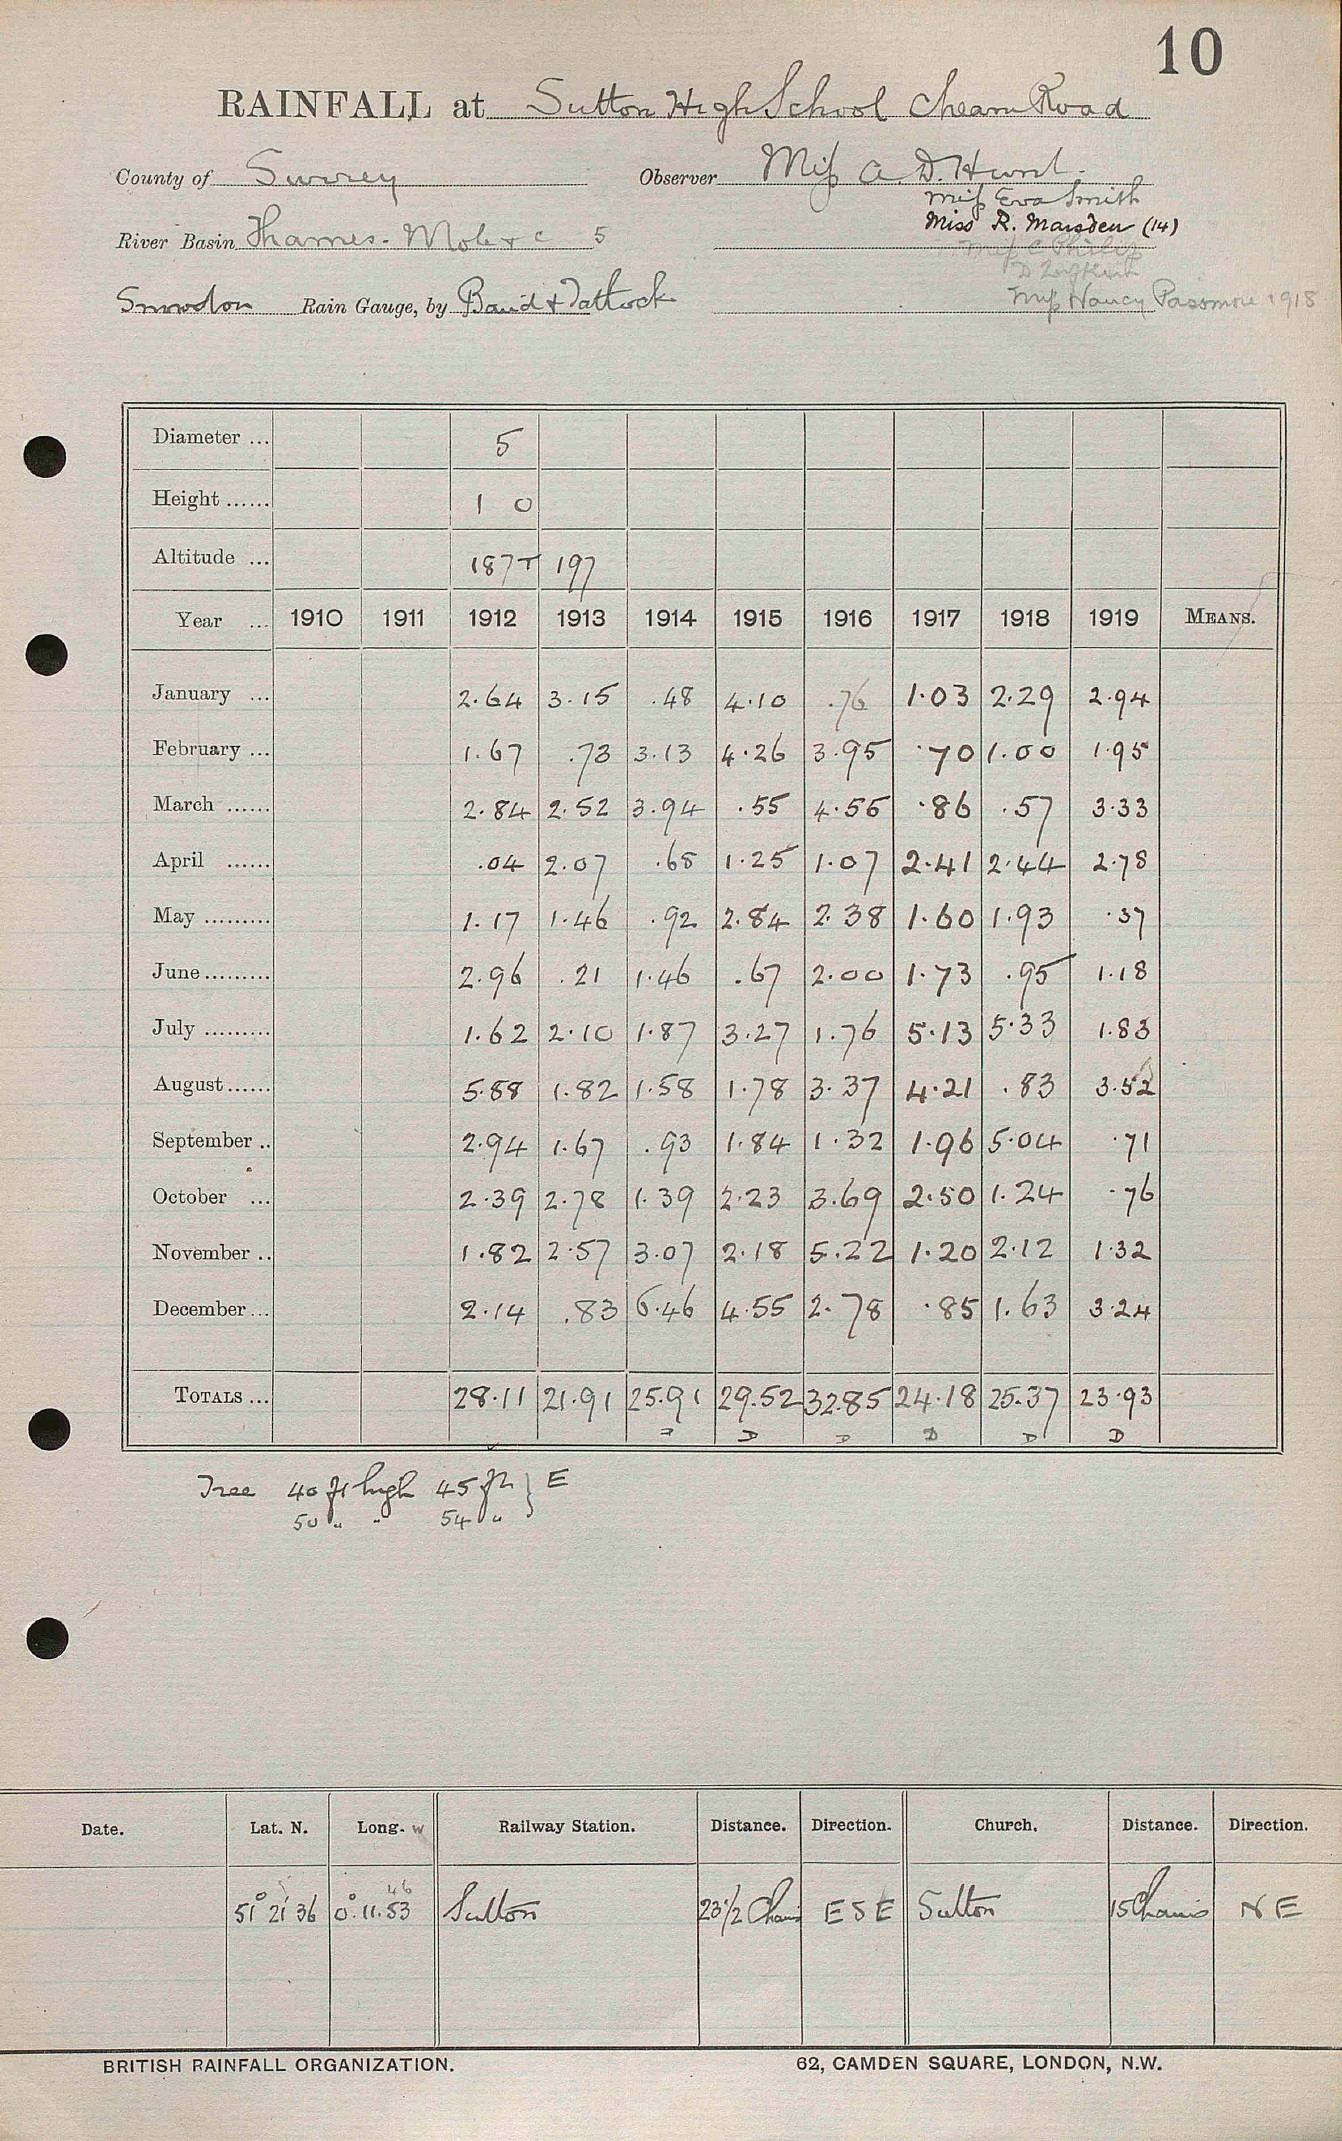 10
RAINFALL at Sutton High School Cheam Road
County of Surrey Observer Miss A. D. Hurst.
Miss Eva Smith
River Basin Thames. Mole &c 5 Miss R. Marsden (14)
Miss C Philip
Snowdon Rain Gauge, by Baird & Tatlock Miss Nancy Passmore 1918
Diameter ... 5
Height ...... 1 0
Altitude ... 187T 197
Year ... 1910 1911 1912 1913 1914 1915 1916 1917 1918 1919 MEANS.
January ... 2.64 3.15 .48 4.10 .76 1.03 2.29 2.94
February ... 1.67 .73 3.13 4.26 3.95 .70 1.00 1.95
March ...... 2.84 2.52 3.94 .55 4.55 .86 .57 3.33
April ...... .04 2.07 .68 1.25 1.07 2.41 2.44 2.78
May ......... 1.17 1.46 .92 2.84 2.38 1.60 1.93 .37
June ......... 2.96 .21 1.46 .67 2.00 1.73 .95 1.18
July ......... 1.62 2.10 1.87 3.27 1.76 5.13 5.33 1.83
August ...... 5.88 1.82 1.58 1.78 3.37 4.21 .83 3.52
September .. 2.94 1.67 .93 1.84 1.32 1.96 5.04 .71
October ... 2.39 2.78 1.39 2.23 3.69 2.50 1.24 .76
November .. 1.82 2.57 3.07 2.18 5.22 1.20 2.12 1.32
December ... 2.14 .83 6.46 4.55 2.78 .85 1.63 3.24
TOTALS ... 28.11 21.91 25.91 29.52 32.85 24.18 25.37 23.93
D D D D D
Tree 40 ft high 45 ft } E
50 " " 54 "
Date. Lat. N. Long. W Railway Station. Distance. Direction. Church. Distance. Direction.
46
51° 21' 36 0°.11.53 Sutton 23 1/2 Chains E S E Sutton 15 Chains N E
BRITISH RAINFALL ORGANIZATION. 62, CAMDEN SQUARE, LONDON, N.W.